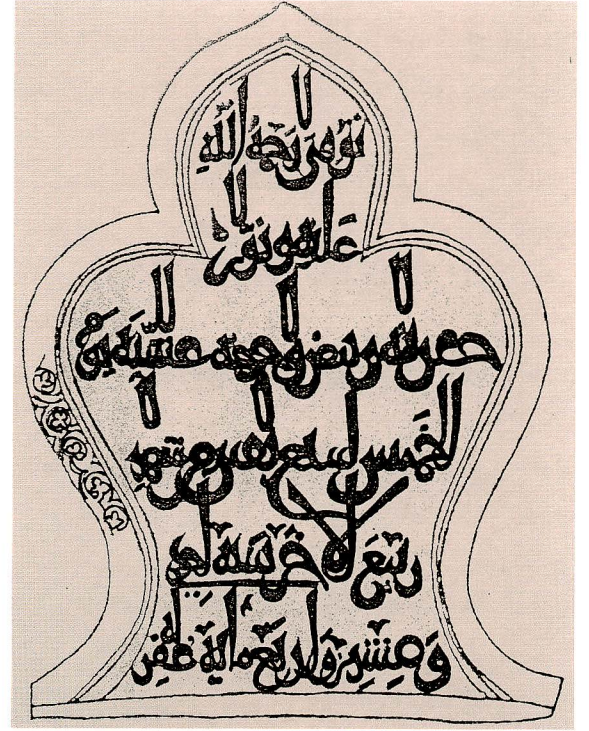 توفي رحمة الله
عليه ونور
حفرته وبيض وجهه عشية يوم
الخميس لسبع بقين من شهر
ربيع الاخر سنة
وعشرين واربع ماية غفر